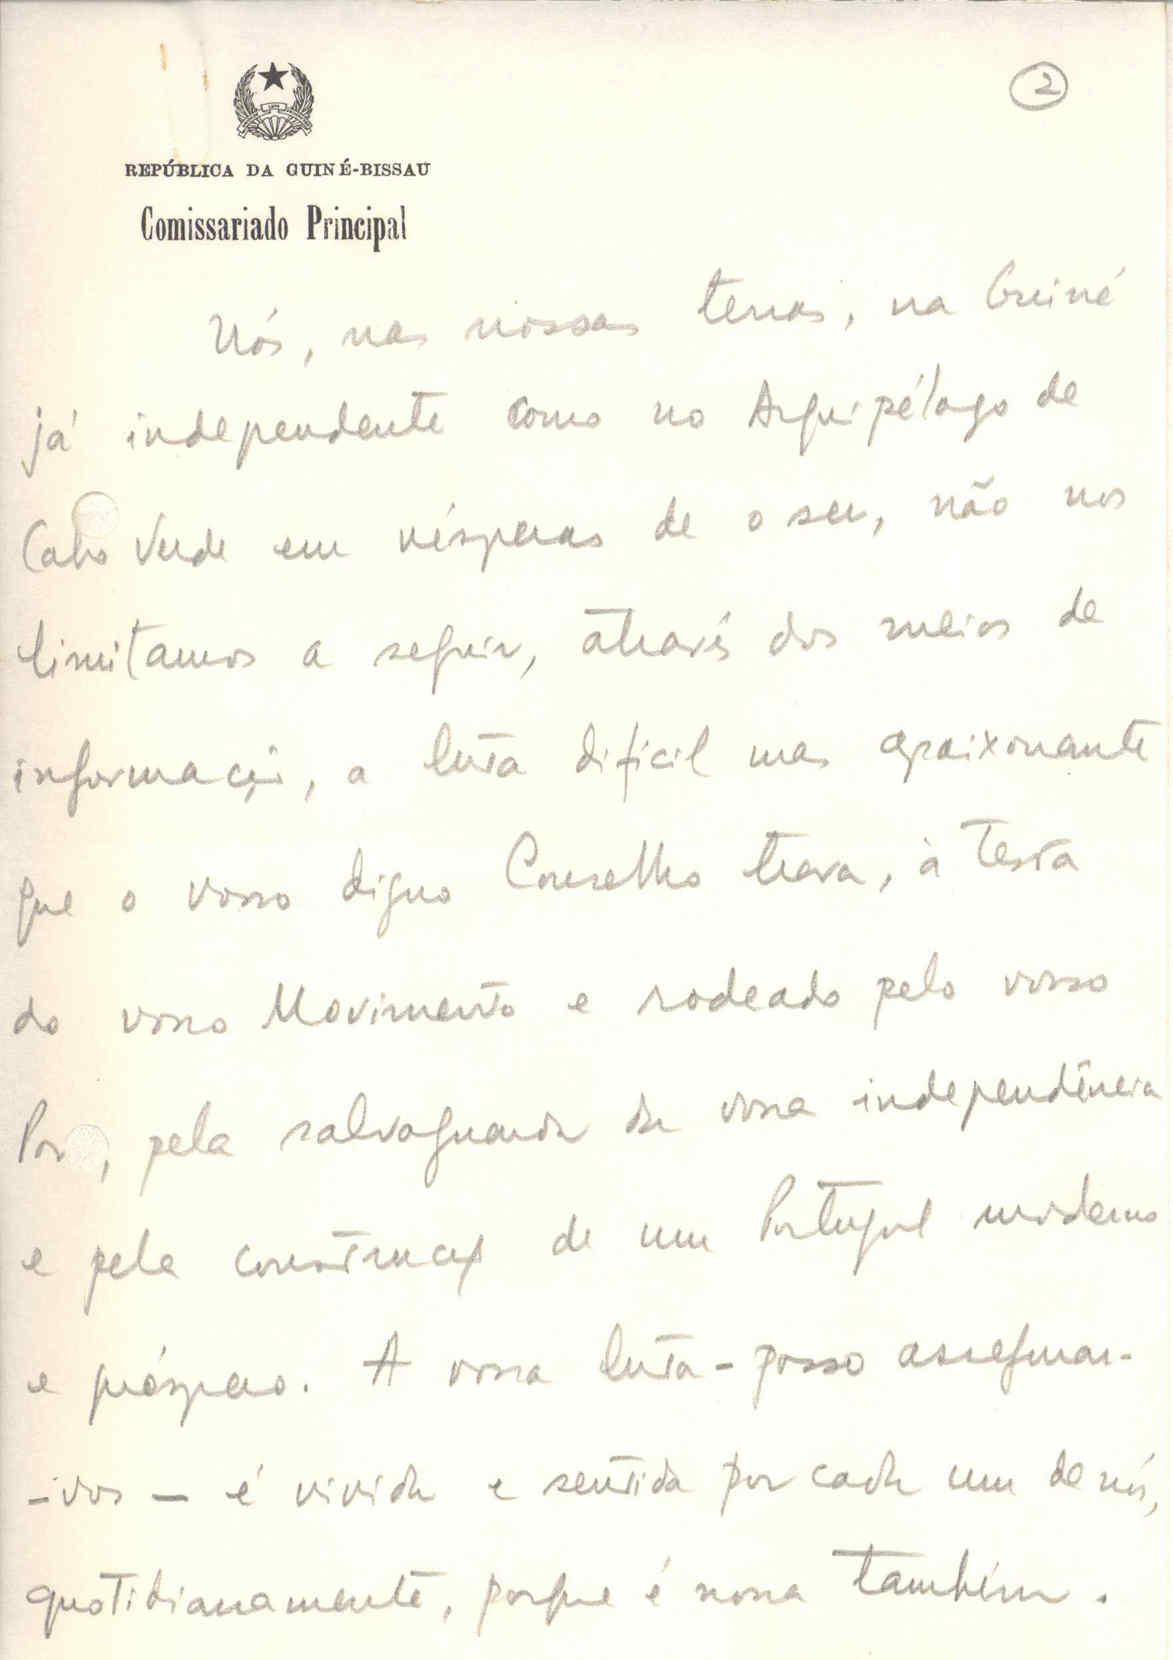 2
REPÚBLICA DA GUINÉ-BISSAU
Comissariado Principal
Nós, nas nossas terras, na Guiné
já independente como no Arquipélago de
Cabo Verde em vésperas de o ser, não nos
limitamos a seguir, através dos meios de
informação, a luta difícil mas apaixonante
que o vosso digno Conselho trava, à testa
do vosso Movimento e rodeado pelo vosso
Povo, pela salvaguarda da vossa independência
e pela construção de um Portugal moderno
e próspero. A vossa luta - posso assegurar-
-vos - é vivida e sentida por cada um de nós,
quotidianamente, porque é nossa também.